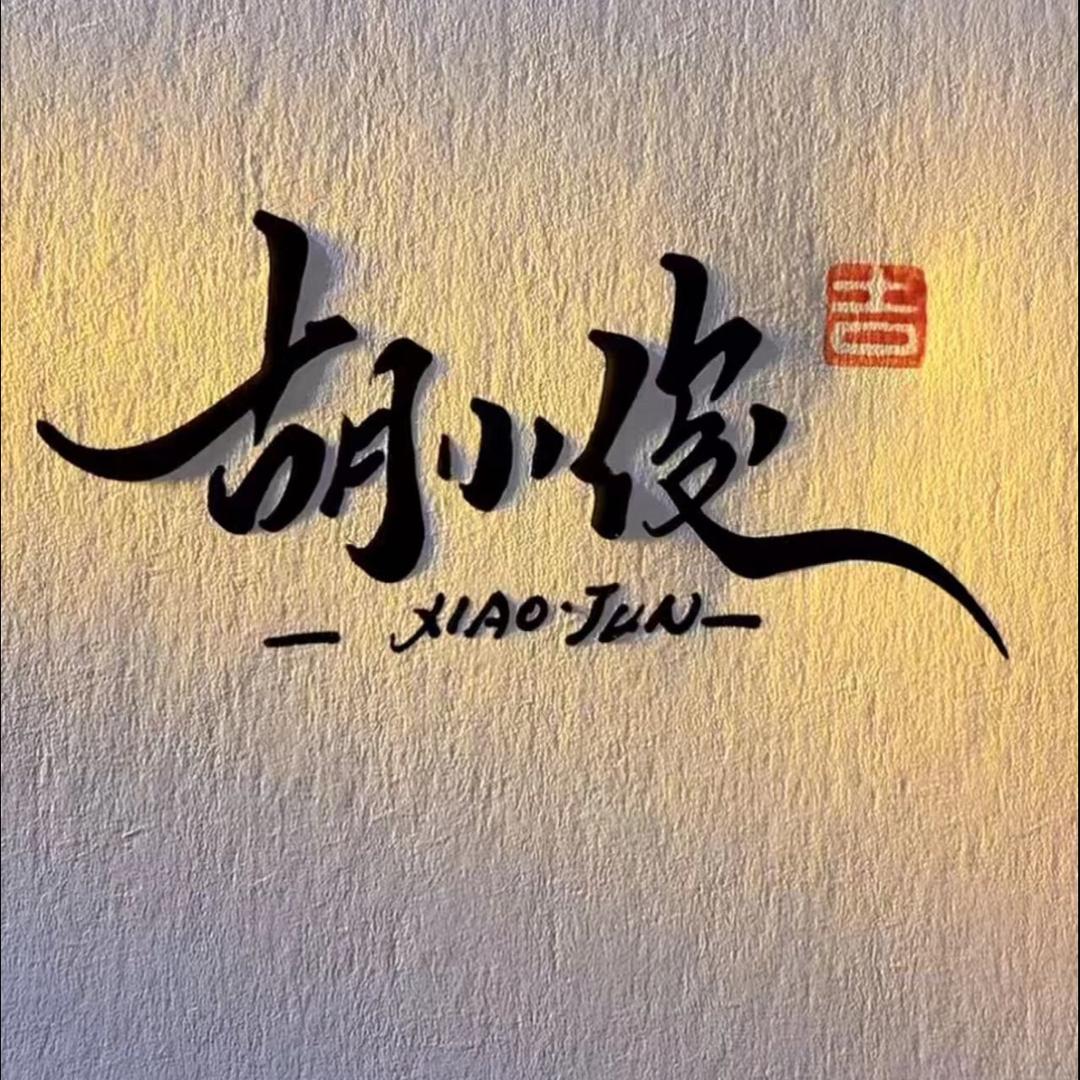 胡小俊
吉
XIAO·JUN